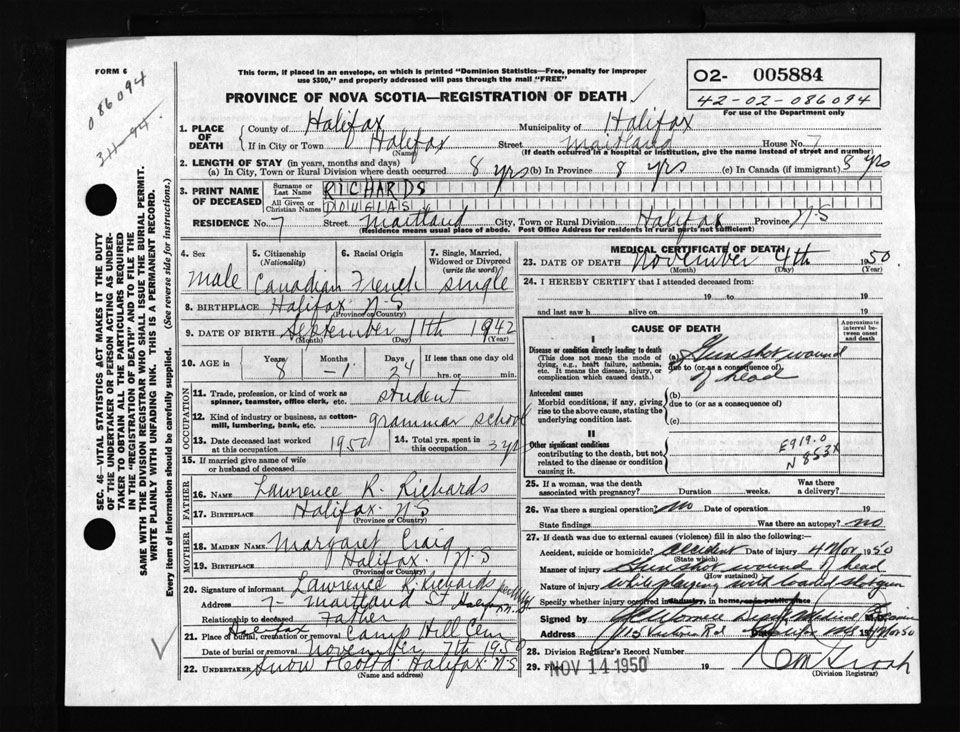 FORM 6
086094
3H-94.
This form, if placed in an envelope, on which is printed "Dominion Statistics—Free, penalty for improper
use $300," and properly addressed will pass through the mail "FREE"
PROVINCE OF NOVA SCOTIA—REGISTRATION OF DEATH
02- 005884
42-02-086094
For use of the Department only
SEC. 46—VITAL STATISTICS ACT MAKES IT THE DUTY
OF THE UNDERTAKER OR PERSON ACTING AS UNDER-
TAKER TO OBTAIN ALL THE PARTICULARS REQUIRED
IN THE "REGISTRATION OF DEATH" AND TO FILE THE
SAME WITH THE DIVISION REGISTRAR WHO SHALL ISSUE THE BURIAL PERMIT.
WRITE PLAINLY WITH UNFADING INK. THIS IS A PERMANENT RECORD.
Every item of information should be carefully supplied. (See reverse side for instructions.)
1. PLACE OF DEATH County of Halifax Municipality of Halifax
If in City or Town Halifax Street Maitland House No. 7
(Name) (If death occurred in a hospital or institution, give the name instead of street and number)
2. LENGTH OF STAY (in years, months and days)
(a) In City, Town or Rural Division where death occurred 8 yrs (b) In Province 8 yrs (c) In Canada (if immigrant) 8 yrs
3. PRINT NAME OF DECEASED Surname or Last Name RICHARDS
All Given or Christian Names DOUGLAS
RESIDENCE No. 7 Street Maitland City, Town or Rural Division Halifax Province N.S
(Residence means usual place of abode. Post Office Address for residents in rural parts not sufficient)
4. Sex Male
5. Citizenship (Nationality) Canadian
6. Racial Origin French
7. Single, Married, Widowed or Divorced (write the word) single
8. BIRTHPLACE Halifax N.S
(Province or Country)
9. DATE OF BIRTH September 11th 1942
(Month) (Day) (Year)
10. AGE in Years 8 Months -1- Days 24 If less than one day
hrs. or min.
OCCUPATION
11. Trade, profession, or kind of work as spinner, teamster, office clerk, etc. student
12. Kind of industry or business, as cotton-mill, lumbering, bank, etc. grammar school
13. Date deceased last worked at this occupation 1950 14. Total yrs. spent in this occupation 3 yrs
15. If married give name of wife or husband of deceased
FATHER
16. NAME Lawrence R. Richards
17. BIRTHPLACE Halifax N.S
(Province or Country)
MOTHER
18. MAIDEN NAME Margaret Craig
19. BIRTHPLACE Halifax N.S
(Province or Country)
20. Signature of informant Lawrence R. Richards
Address 7- Maitland St Halifax N.S
Relationship to deceased Father
21. Place of burial, cremation or removal Halifax Camp Hill Cem
Date of burial or removal November 7th 1950
22. UNDERTAKER Snow & Co Ltd. Halifax N.S
(Name and address)
MEDICAL CERTIFICATE OF DEATH
23. DATE OF DEATH November 4th 1950.
(Month) (Day) (Year)
24. I HEREBY CERTIFY that I attended deceased from:
19 to 19
and last saw h alive on 19
CAUSE OF DEATH
Approximate interval between onset and death
I
Disease or condition directly leading to death
(This does not mean the mode of dying, e.g., heart failure, asthenia, etc. It means the disease, injury, or complication which caused death.)
(a) Gunshot wound
due to (or as a consequence of)
of head
Antecedent causes
Morbid conditions, if any, giving rise to the above cause, stating the underlying condition last.
(b)
due to (or as a consequence of)
(c)
II
Other significant conditions
contributing to the death, but not related to the disease or condition causing it.
E919.0
N 853X
25. If a woman, was the death associated with pregnancy? Duration weeks. Was there a delivery?
26. Was there a surgical operation? no Date of operation
State findings Was there an autopsy? no
27. If death was due to external causes (violence) fill in also the following:—
Accident, suicide or homicide? accident Date of injury 4 Nov 1950
(State which)
Manner of injury Gunshot wound of head
(How sustained)
Nature of injury while playing with loaded shotgun
Specify whether injury occurred in industry, in home, or in public place
Signed by Deputy Medical Examiner
Address 115 Victoria Rd Halifax N.S. 4 Nov 50
28. Division Registrar's Record Number
29. Filed NOV 14 1950 19
(Division Registrar)